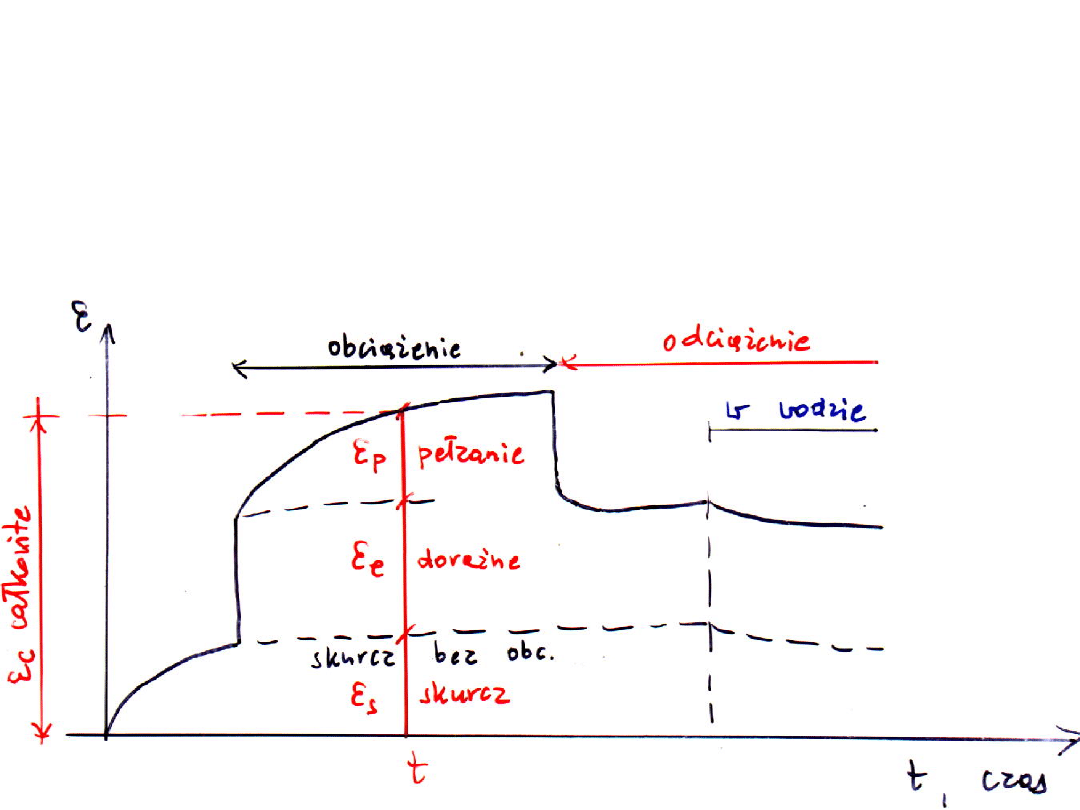 ε
obciążenie
odciążenie
w wodzie
εp pełzanie
εe doraźne
skurcz bez obc.
εs skurcz
εc całkowite
t
t, czas